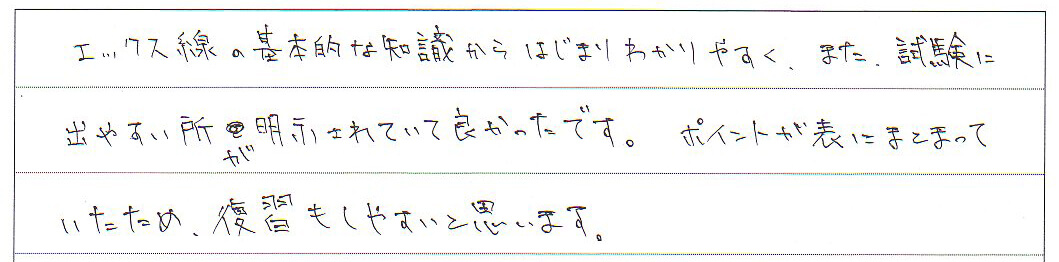 エックス線の基本的な知識からはじまりわかりやすく、また、試験に
出やすい所が明示されていて良かったです。 ポイントが表にまとまって
いたため、復習もしやすいと思います。